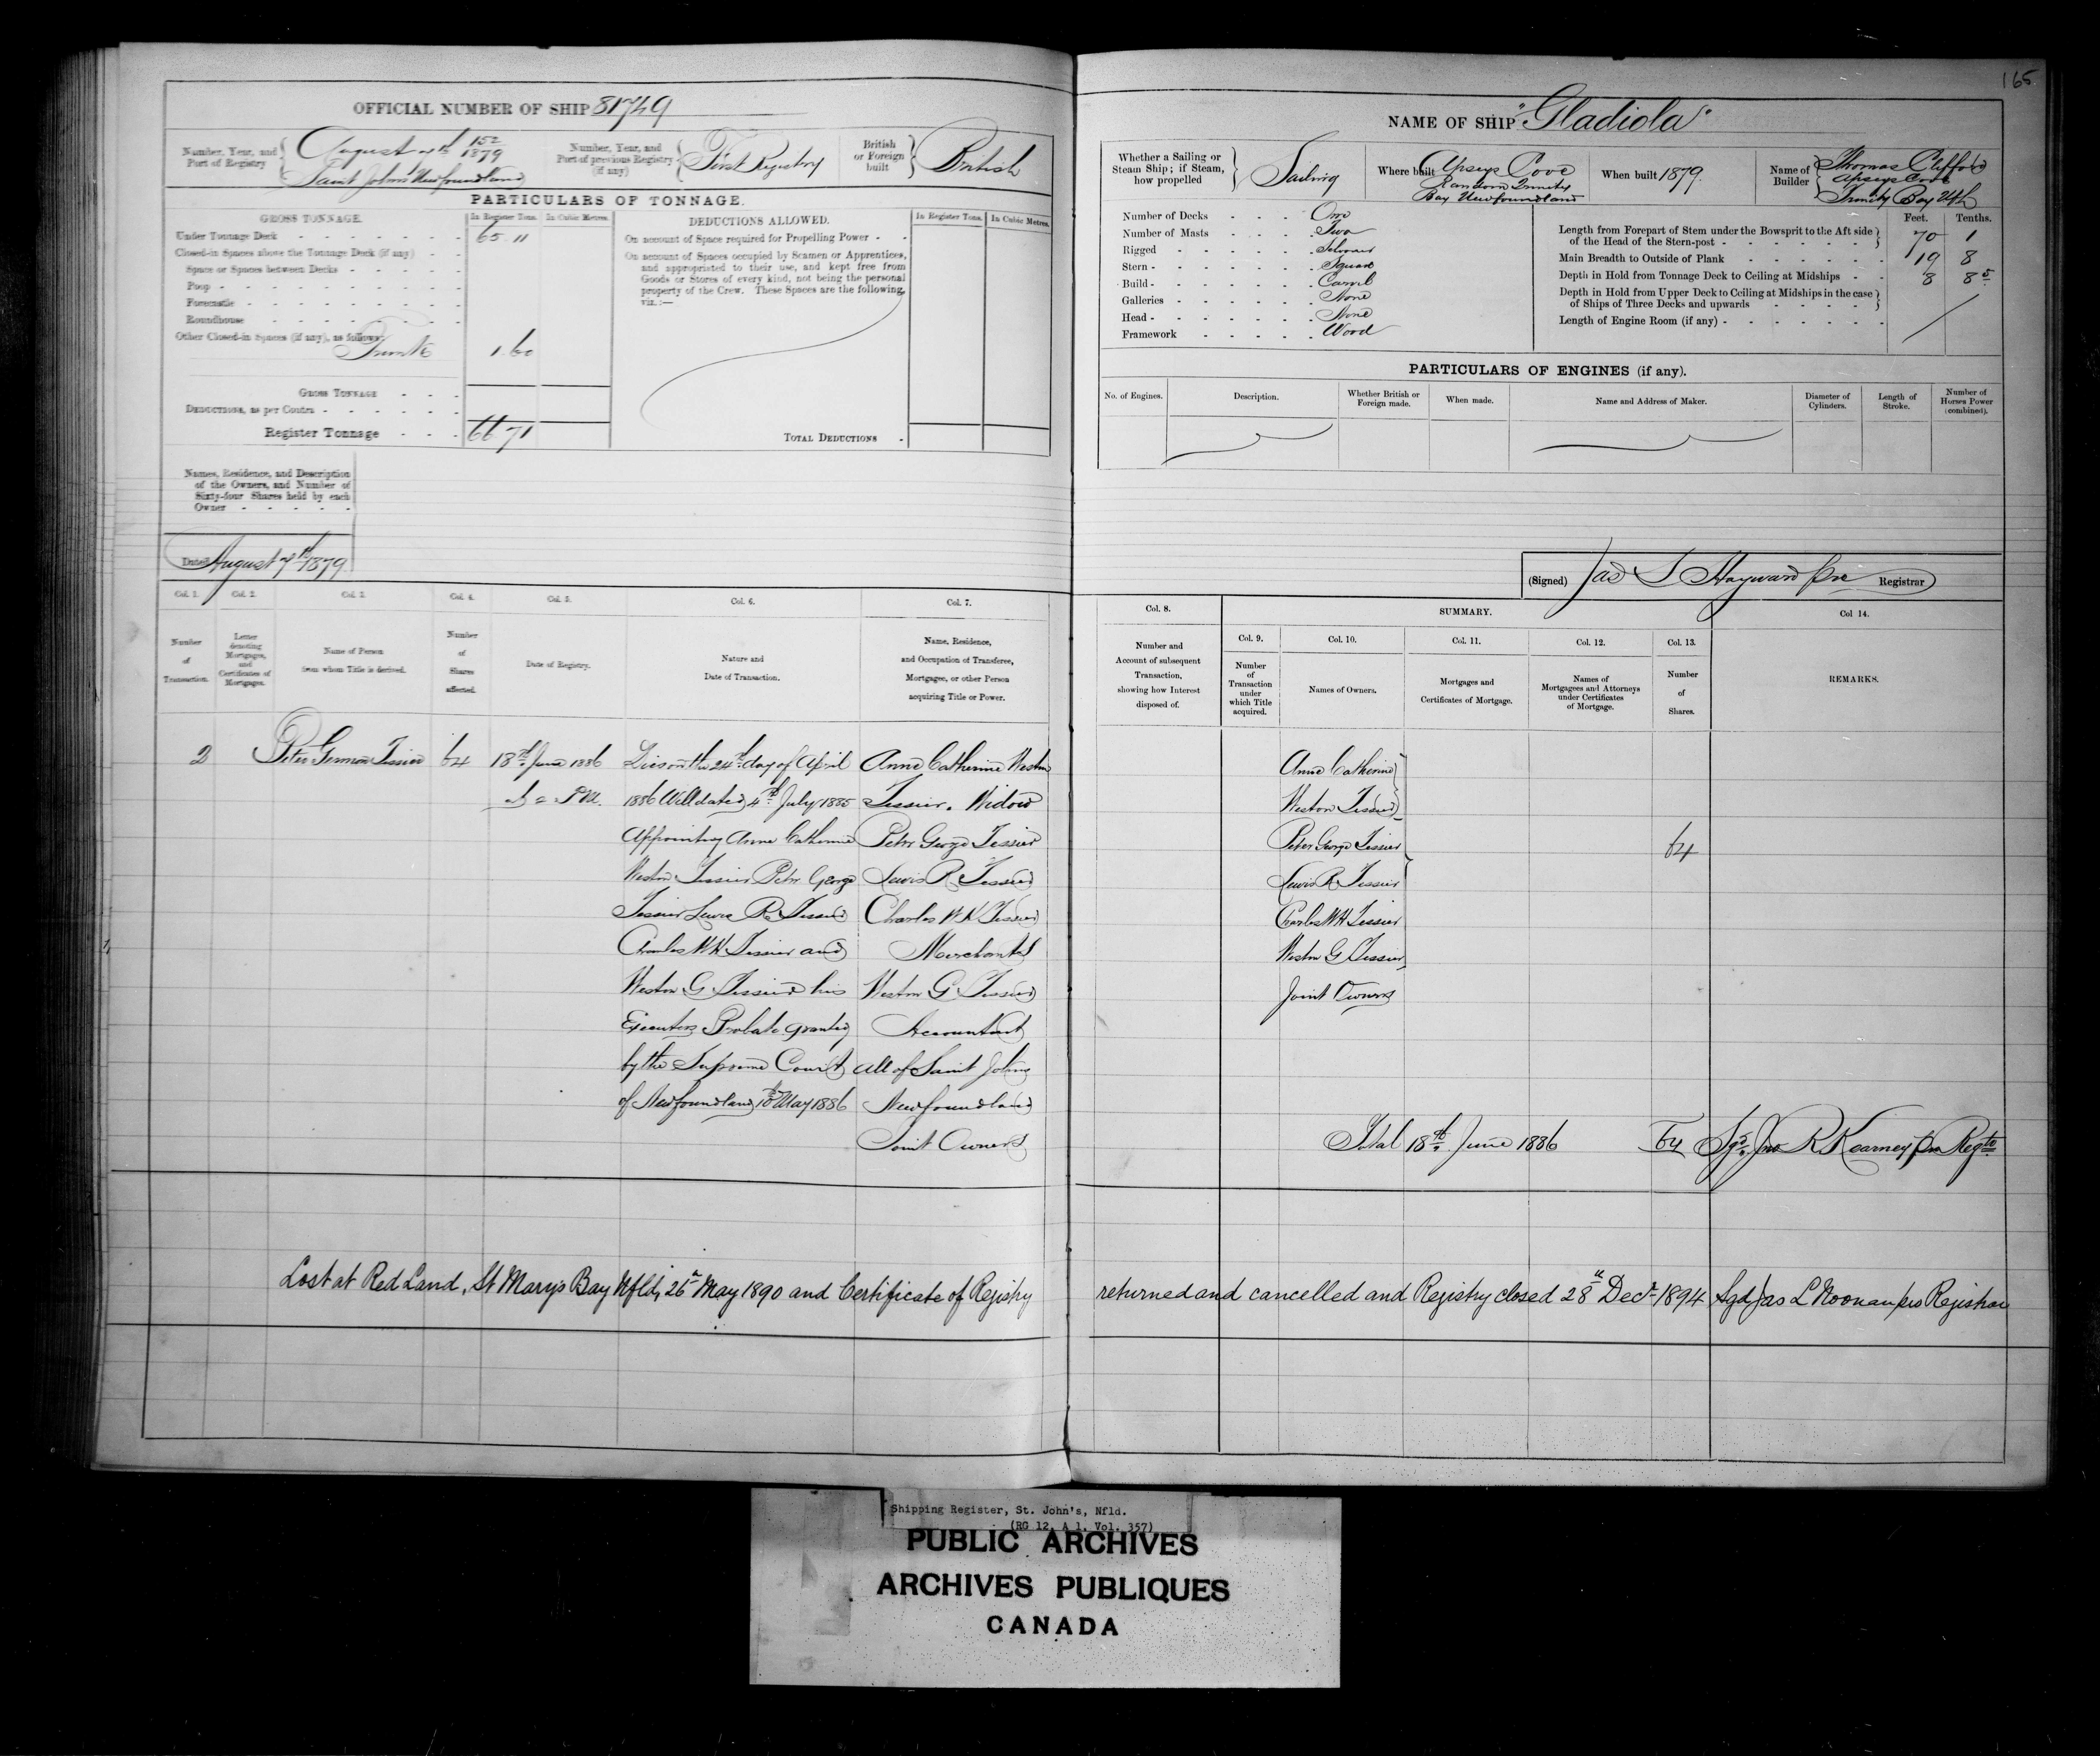 165
OFFICIAL NUMBER OF SHIP 81749
Number, Year, and Port of Registry
15=
August 7th 1879
Saint John's Newfoundland
Number, Year, and Port of previous Registry (if any)
First Registry
British or Foreign built
British
PARTICULARS OF TONNAGE.
GROSS TONNAGE.
In Register Tons.
In Cubic Metres.
Under Tonnage Deck 65 11
Closed-in Spaces above the Tonnage Deck (if any)
Space or Spaces between Decks
Poop
Forecastle
Roundhouse
Other Closed-in Spaces (if any), as follows:
1.60
GROSS TONNAGE
DEDUCTIONS, as per Contra
Register Tonnage 66 71
DEDUCTIONS ALLOWED.
In Register Tons.
In Cubic Metres.
On account of Space required for Propelling Power
On account of Spaces occupied by Seamen or Apprentices,
and appropriated to their use, and kept free from
Goods or Stores of every kind, not being the personal
property of the Crew. These Spaces are the following,
viz.:—
TOTAL DEDUCTIONS
Names, Residence, and Description
of the Owners, and Number of
Sixty-four Shares held by each
Owner
Dated August 7th 1879
NAME OF SHIP "Gladiola"
Whether a Sailing or Steam Ship; if Steam, how propelled
Sailing
Where built
Apseys Cove
Random Trinity
Bay Newfoundland
When built 1879.
Name of Builder
Thomas Clifford
Apseys Cove
Trinity Bay Nfld
Number of Decks One
Number of Masts Two
Rigged Schooner
Stern Square
Build Carvel
Galleries None
Head None
Framework Wood
Feet. Tenths.
Length from Forepart of Stem under the Bowsprit to the Aft side
of the Head of the Stern-post 70 1
Main Breadth to Outside of Plank 19 8
Depth in Hold from Tonnage Deck to Ceiling at Midships 8 8 5
Depth in Hold from Upper Deck to Ceiling at Midships in the case
of Ships of Three Decks and upwards
Length of Engine Room (if any)
PARTICULARS OF ENGINES (if any).
No. of Engines.
Description.
Whether British or Foreign made.
When made.
Name and Address of Maker.
Diameter of Cylinders.
Length of Stroke.
Number of Horses Power (combined).
(Signed) Jas S Hayward pro Registrar
Col. 1.
Number of Transaction.
Col. 2.
Letter denoting Mortgages, and Certificates of Mortgages.
Col. 3.
Name of Person from whom Title is derived.
Col. 4.
Number of Shares affected.
Col. 5.
Date of Registry.
Col. 6.
Nature and Date of Transaction.
Col. 7.
Name, Residence, and Occupation of Transferee, Mortgagee, or other Person acquiring Title or Power.
Col. 8.
Number and Account of subsequent Transaction, showing how Interest disposed of.
SUMMARY.
Col. 9.
Number of Transaction under which Title acquired.
Col. 10.
Names of Owners.
Col. 11.
Mortgages and Certificates of Mortgage.
Col. 12.
Names of Mortgagees and Attorneys under Certificates of Mortgage.
Col. 13.
Number of Shares.
Col 14.
REMARKS.
2
Peter German Tessier
64
18th June 1886
2 P.M.
Died on the 24th day of April
1886 Will dated 4th July 1885
Appointing Anne Catherine
Weston Tessier Peter George
Tessier Lewis R Tessier
Charles W H Tessier and
Weston G Tessier his
Executors Probate granted
by the Supreme Court
of Newfoundland 10th May 1886
Anne Catherine Weston
Tessier. Widow
Peter George Tessier
Lewis R Tessier
Charles W H Tessier
Merchants
Weston G Tessier
Accountant
all of Saint Johns
Newfoundland
Joint Owners
Anne Catherine
Weston Tessier
Peter George Tessier
Lewis R Tessier
Charles W H Tessier
Weston G Tessier
Joint Owners
64
Total 18th June 1886 64 Sgd Jno R Kearney pro Regtr
Lost at Red Land, St Marys Bay Nfld, 26th May 1890 and Certificate of Registry returned and cancelled and Registry closed 28th Decr 1894 Sgd Jas L Noonan pro Registrar
Shipping Register, St. John's, Nfld.
(RG 12, A 1, Vol. 357)
PUBLIC ARCHIVES
ARCHIVES PUBLIQUES
CANADA